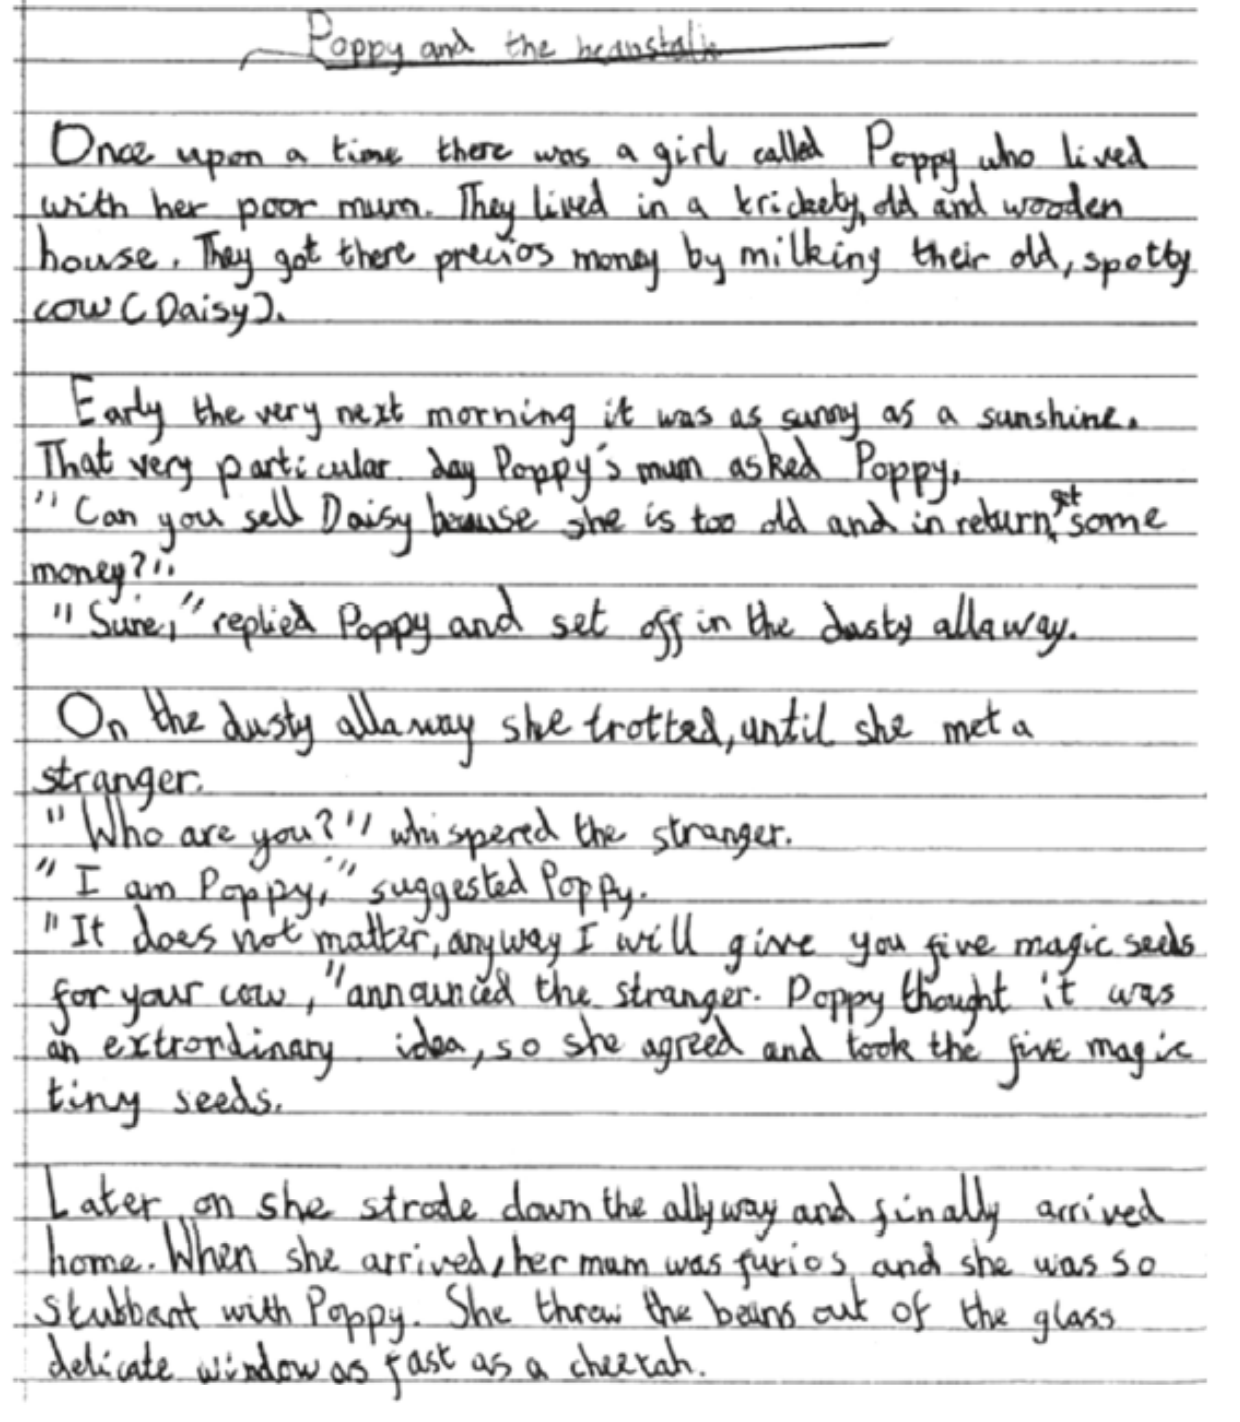 Poppy and the beanstalk
Once upon a time there was a girl called Poppy who lived
with her poor mum. They lived in a krickety, old and wooden
house. They got there precios money by milking their old, spotty
cow (Daisy).
Early the very next morning it was as sunny as a sunshine.
That very particular day Poppy's mum asked Poppy,
"Can you sell Daisy because she is too old and in return, get some
money?".
"Sure," replied Poppy and set off in the dusty allaway.
On the dusty allaway she trotted, until she met a
stranger.
"Who are you?" whispered the stranger.
"I am Poppy," suggested Poppy.
"It does not matter, anyway I will give you five magic seeds
for your cow," announced the stranger. Poppy thought it was
an extrordinary idea, so she agreed and took the five magic
tiny seeds.
Later on she strode down the allyway and finally arrived
home. When she arrived, her mum was furios and she was so
stubbant with Poppy. She threw the beans out of the glass
delicate window as fast as a cheetah.